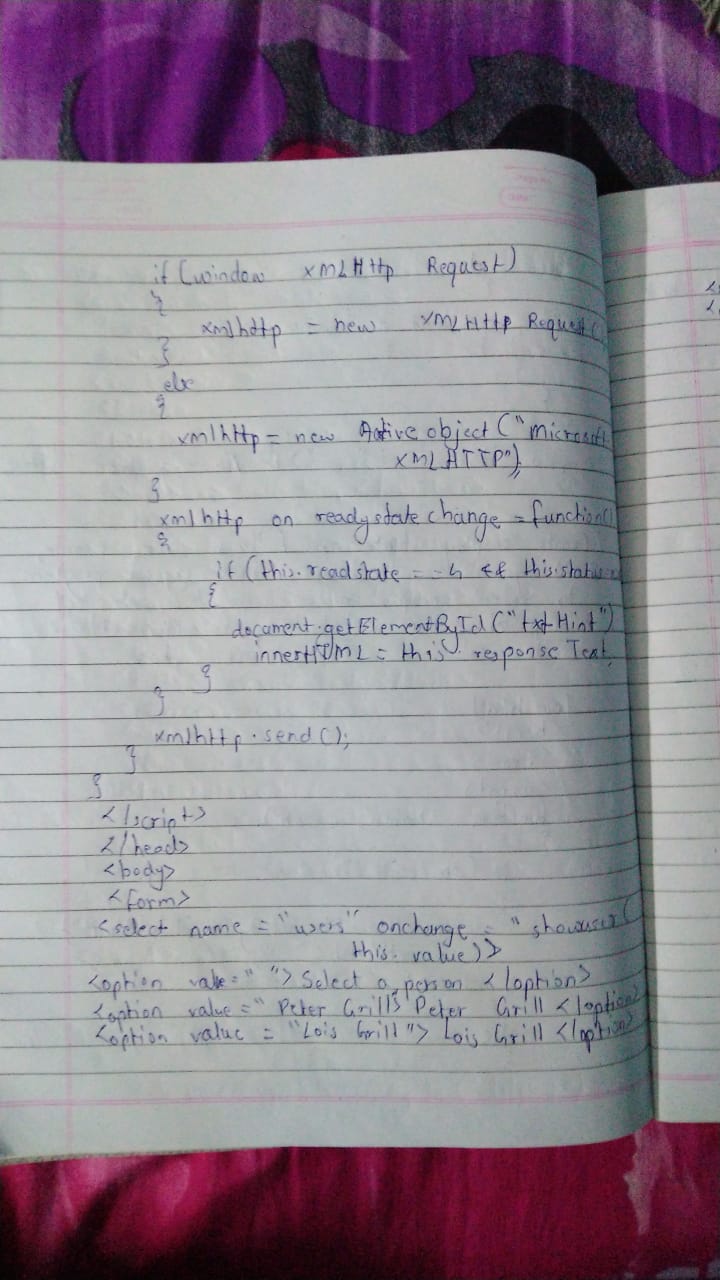 if (window xmLHttp Request)
{
xmlhttp = new XMLHttp Request(
}
else
{
xmlhttp = new Active object ("microsoft
XMLHTTP");
}
xmlhttp on readystate change = function()
{
if (this.readstate == 4 && this.status
{
document.getElementById ("txtHint")
innerHTML = this. response Text
}
}
xmlhttp.send();
}
}
</script>
</head>
<body>
<form>
<select name = "users" onchange = "showuser(
this. value)>
<option value=" "> Select a person </option>
<option value =" Peter Grill> Peter Grill </option>
<option value = "Lois Grill"> Lois Grill </option>